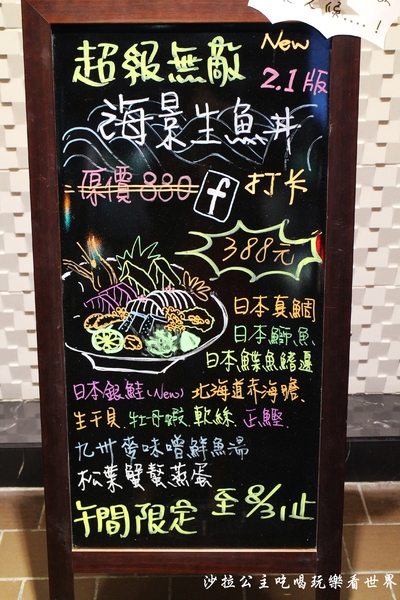 超級無敵 New
2.1版
海景生魚丼
原價880 f 打卡
388元
日本真鯛
日本鰤魚
日本鰈魚鰭邊
日本銀鮭(New) 北海道赤海膽、
生干貝、牡丹蝦、軟絲、正鰹、
九州麥味噌鮮魚湯
松葉蟹蟹蒸蛋
午間限定 至8/31止
沙拉公主吃喝玩樂看世界